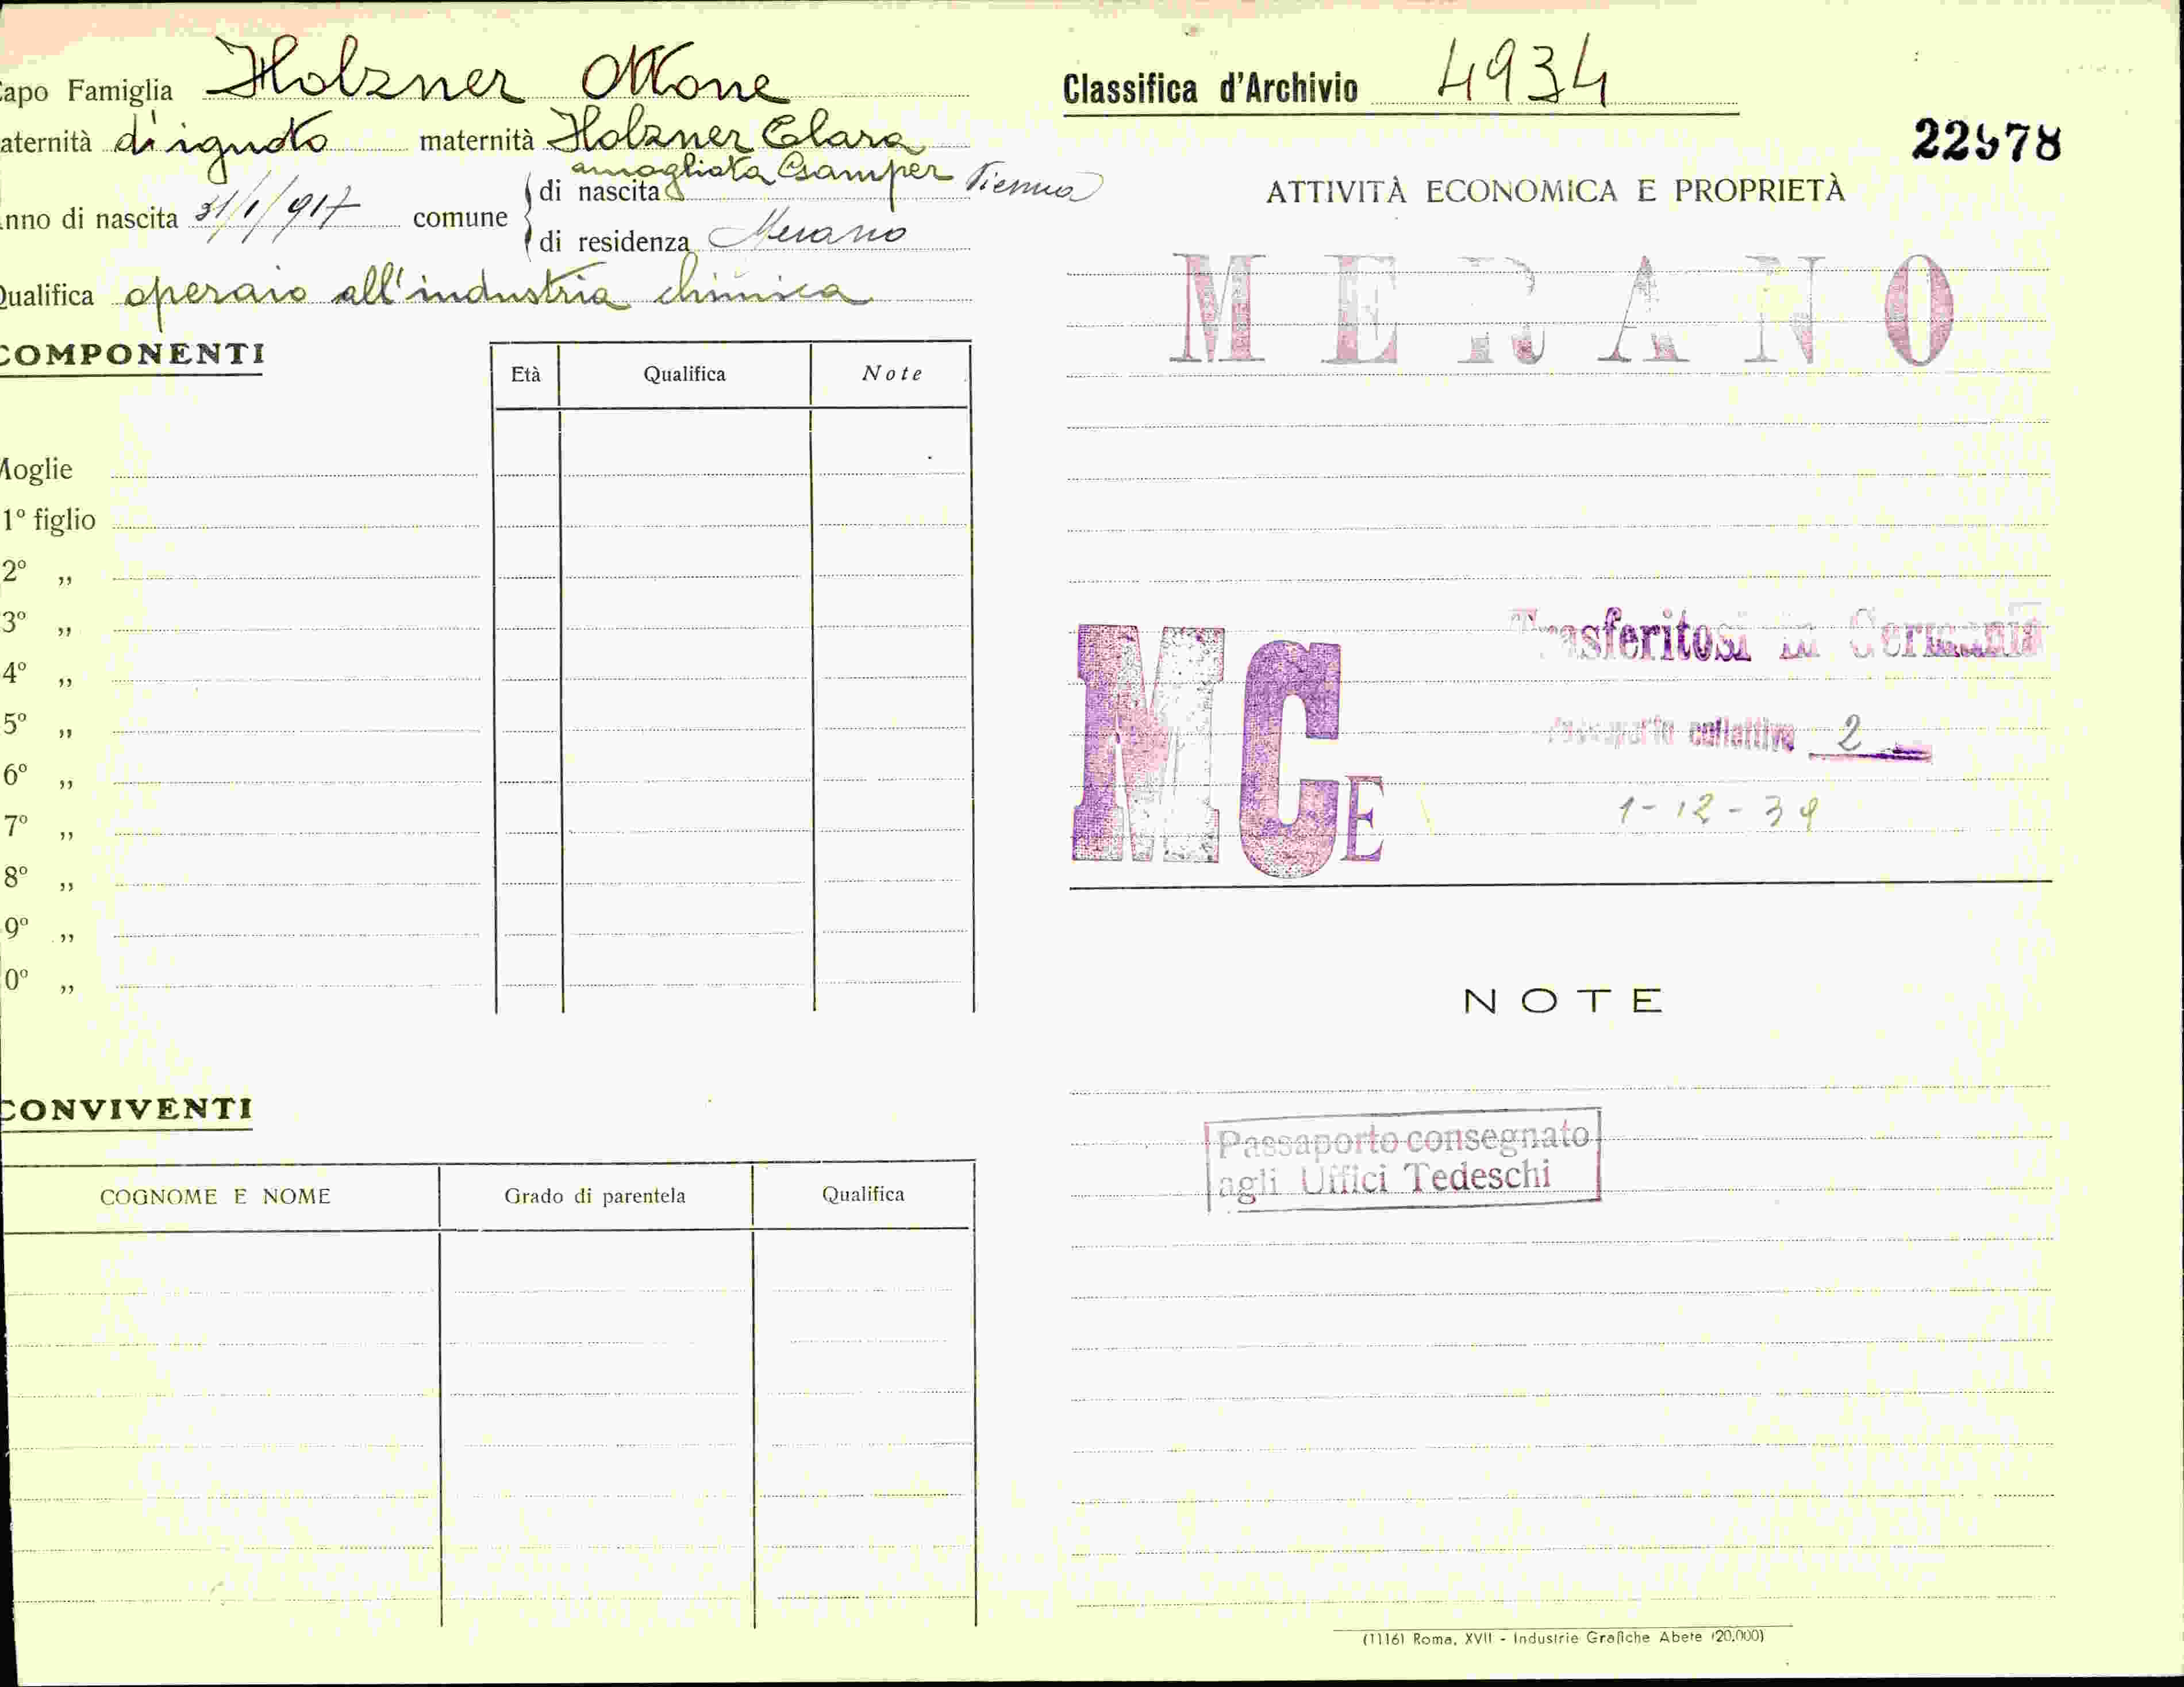 Capo Famiglia Holzner Ottone
aternità di ignoto maternità Holzner Clara
amogliata Gamper
nno di nascita 31/1/917 comune di nascita Vienna
di residenza Merano
Qualifica operaio all'industria chimica
COMPONENTI
Età Qualifica Note
Moglie
1º figlio
2º „
3º „
4º „
5º „
6º „
7º „
8º „
9º „
0º „
CONVIVENTI
COGNOME E NOME Grado di parentela Qualifica
Classifica d'Archivio 4934
22578
ATTIVITÀ ECONOMICA E PROPRIETÀ
MERANO
Trasferitosi in Germania
MCE
passaporto collettivo 2
1-12-39
NOTE
Passaporto consegnato
agli Uffici Tedeschi
(1116) Roma, XVII - Industrie Grafiche Abete (20.000)